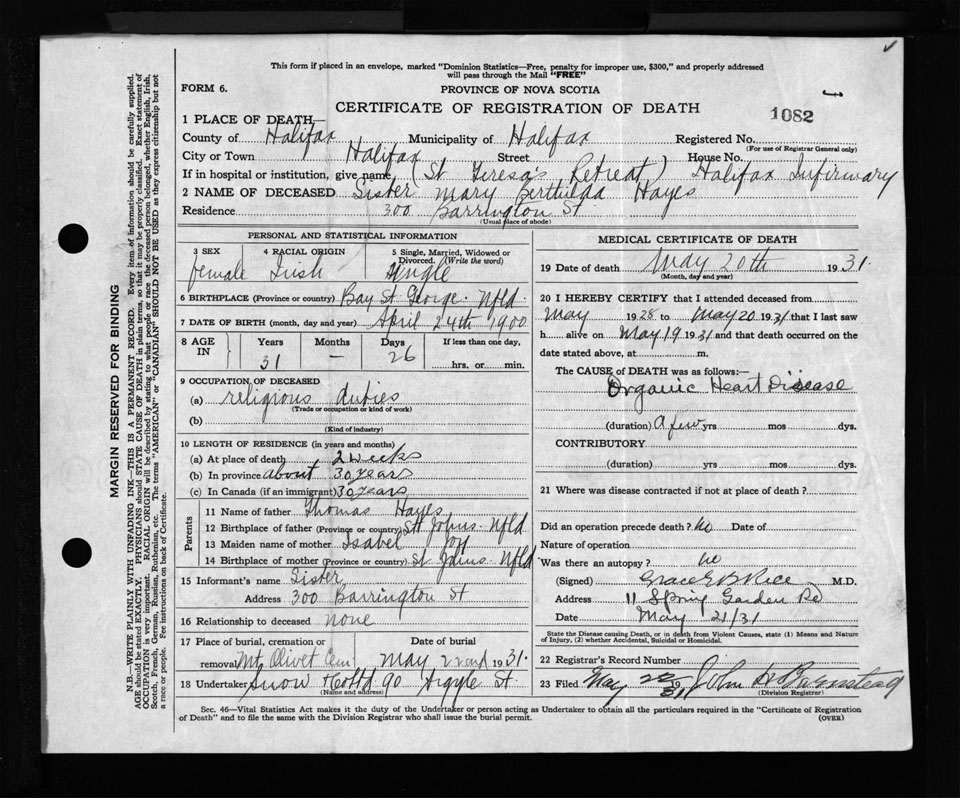 This form if placed in an envelope, marked "Dominion Statistics—Free, penalty for improper use, $300," and properly addressed
will pass through the Mail "FREE"
FORM 6.
PROVINCE OF NOVA SCOTIA
CERTIFICATE OF REGISTRATION OF DEATH
1082
1 PLACE OF DEATH—
County of Halifax Municipality of Halifax Registered No.
(For use of Registrar General only)
City or Town Halifax Street House No.
If in hospital or institution, give name (St Teresa's Retreat) Halifax Infirmary
2 NAME OF DECEASED Sister Mary Berthilda Hayes
Residence 300 Barrington St
(Usual place of abode)
PERSONAL AND STATISTICAL INFORMATION
3 SEX 4 RACIAL ORIGIN 5 Single, Married, Widowed or
Divorced. (Write the word)
female Irish single
6 BIRTHPLACE (Province or country) Bay St George. Nfld
7 DATE OF BIRTH (month, day and year) April 24th 1900
8 AGE IN Years Months Days If less than one day,
31 — 26 hrs. or min.
9 OCCUPATION OF DECEASED
(a) religious duties
(Trade or occupation or kind of work)
(b)
(Kind of industry)
10 LENGTH OF RESIDENCE (in years and months)
(a) At place of death 2 weeks
(b) In province about 30 years
(c) In Canada (if an immigrant) 30 years
Parents
11 Name of father Thomas Hayes
12 Birthplace of father (Province or country) St Johns Nfld
13 Maiden name of mother Isabel Joy
14 Birthplace of mother (Province or country) St Johns Nfld
15 Informant's name Sister
Address 300 Barrington St
16 Relationship to deceased none
17 Place of burial, cremation or Date of burial
removal Mt Olivet Cem May 22nd 1931.
18 Undertaker Snow & Co Ltd 90 Argyle St
(Name and address)
MEDICAL CERTIFICATE OF DEATH
19 Date of death May 20th 1931.
(Month, day and year)
20 I HEREBY CERTIFY that I attended deceased from
May 1928 to May 20 1931 that I last saw
h alive on May 19 1931 and that death occurred on the
date stated above, at m.
The CAUSE OF DEATH was as follows:—
Organic Heart Disease
(duration) A few yrs mos dys.
CONTRIBUTORY
(duration) yrs mos dys.
21 Where was disease contracted if not at place of death?
Did an operation precede death? no Date of
Nature of operation
Was there an autopsy? no
(Signed) Grace E B Rice M.D.
Address 11 Spring Garden Rd
Date May 21/31
State the Disease causing Death, or in death from Violent Causes, state (1) Means and Nature
of Injury, (2) whether Accidental, Suicidal or Homicidal.
22 Registrar's Record Number
23 Filed May 22 1931 John H Barnstead
(Division Registrar)
Sec. 46—Vital Statistics Act makes it the duty of the Undertaker or person acting as Undertaker to obtain all the particulars required in the "Certificate of Registration
of Death" and to file the same with the Division Registrar who shall issue the burial permit.
(OVER)
MARGIN RESERVED FOR BINDING
N.B.—WRITE PLAINLY WITH UNFADING INK—THIS IS A PERMANENT RECORD. Every item of information should be carefully supplied.
AGE should be stated EXACTLY. PHYSICIANS should STATE CAUSE OF DEATH in plain terms, so that it may be properly classified. Exact statement of
OCCUPATION is very important. RACIAL ORIGIN will be described by stating to what people or race the deceased person belonged, whether English, Irish,
Scotch, French, German, Russian, Ruthenian, etc. The terms "AMERICAN" or "CANADIAN" SHOULD NOT BE USED as they express citizenship but not
a race or people. See instructions on back of Certificate.